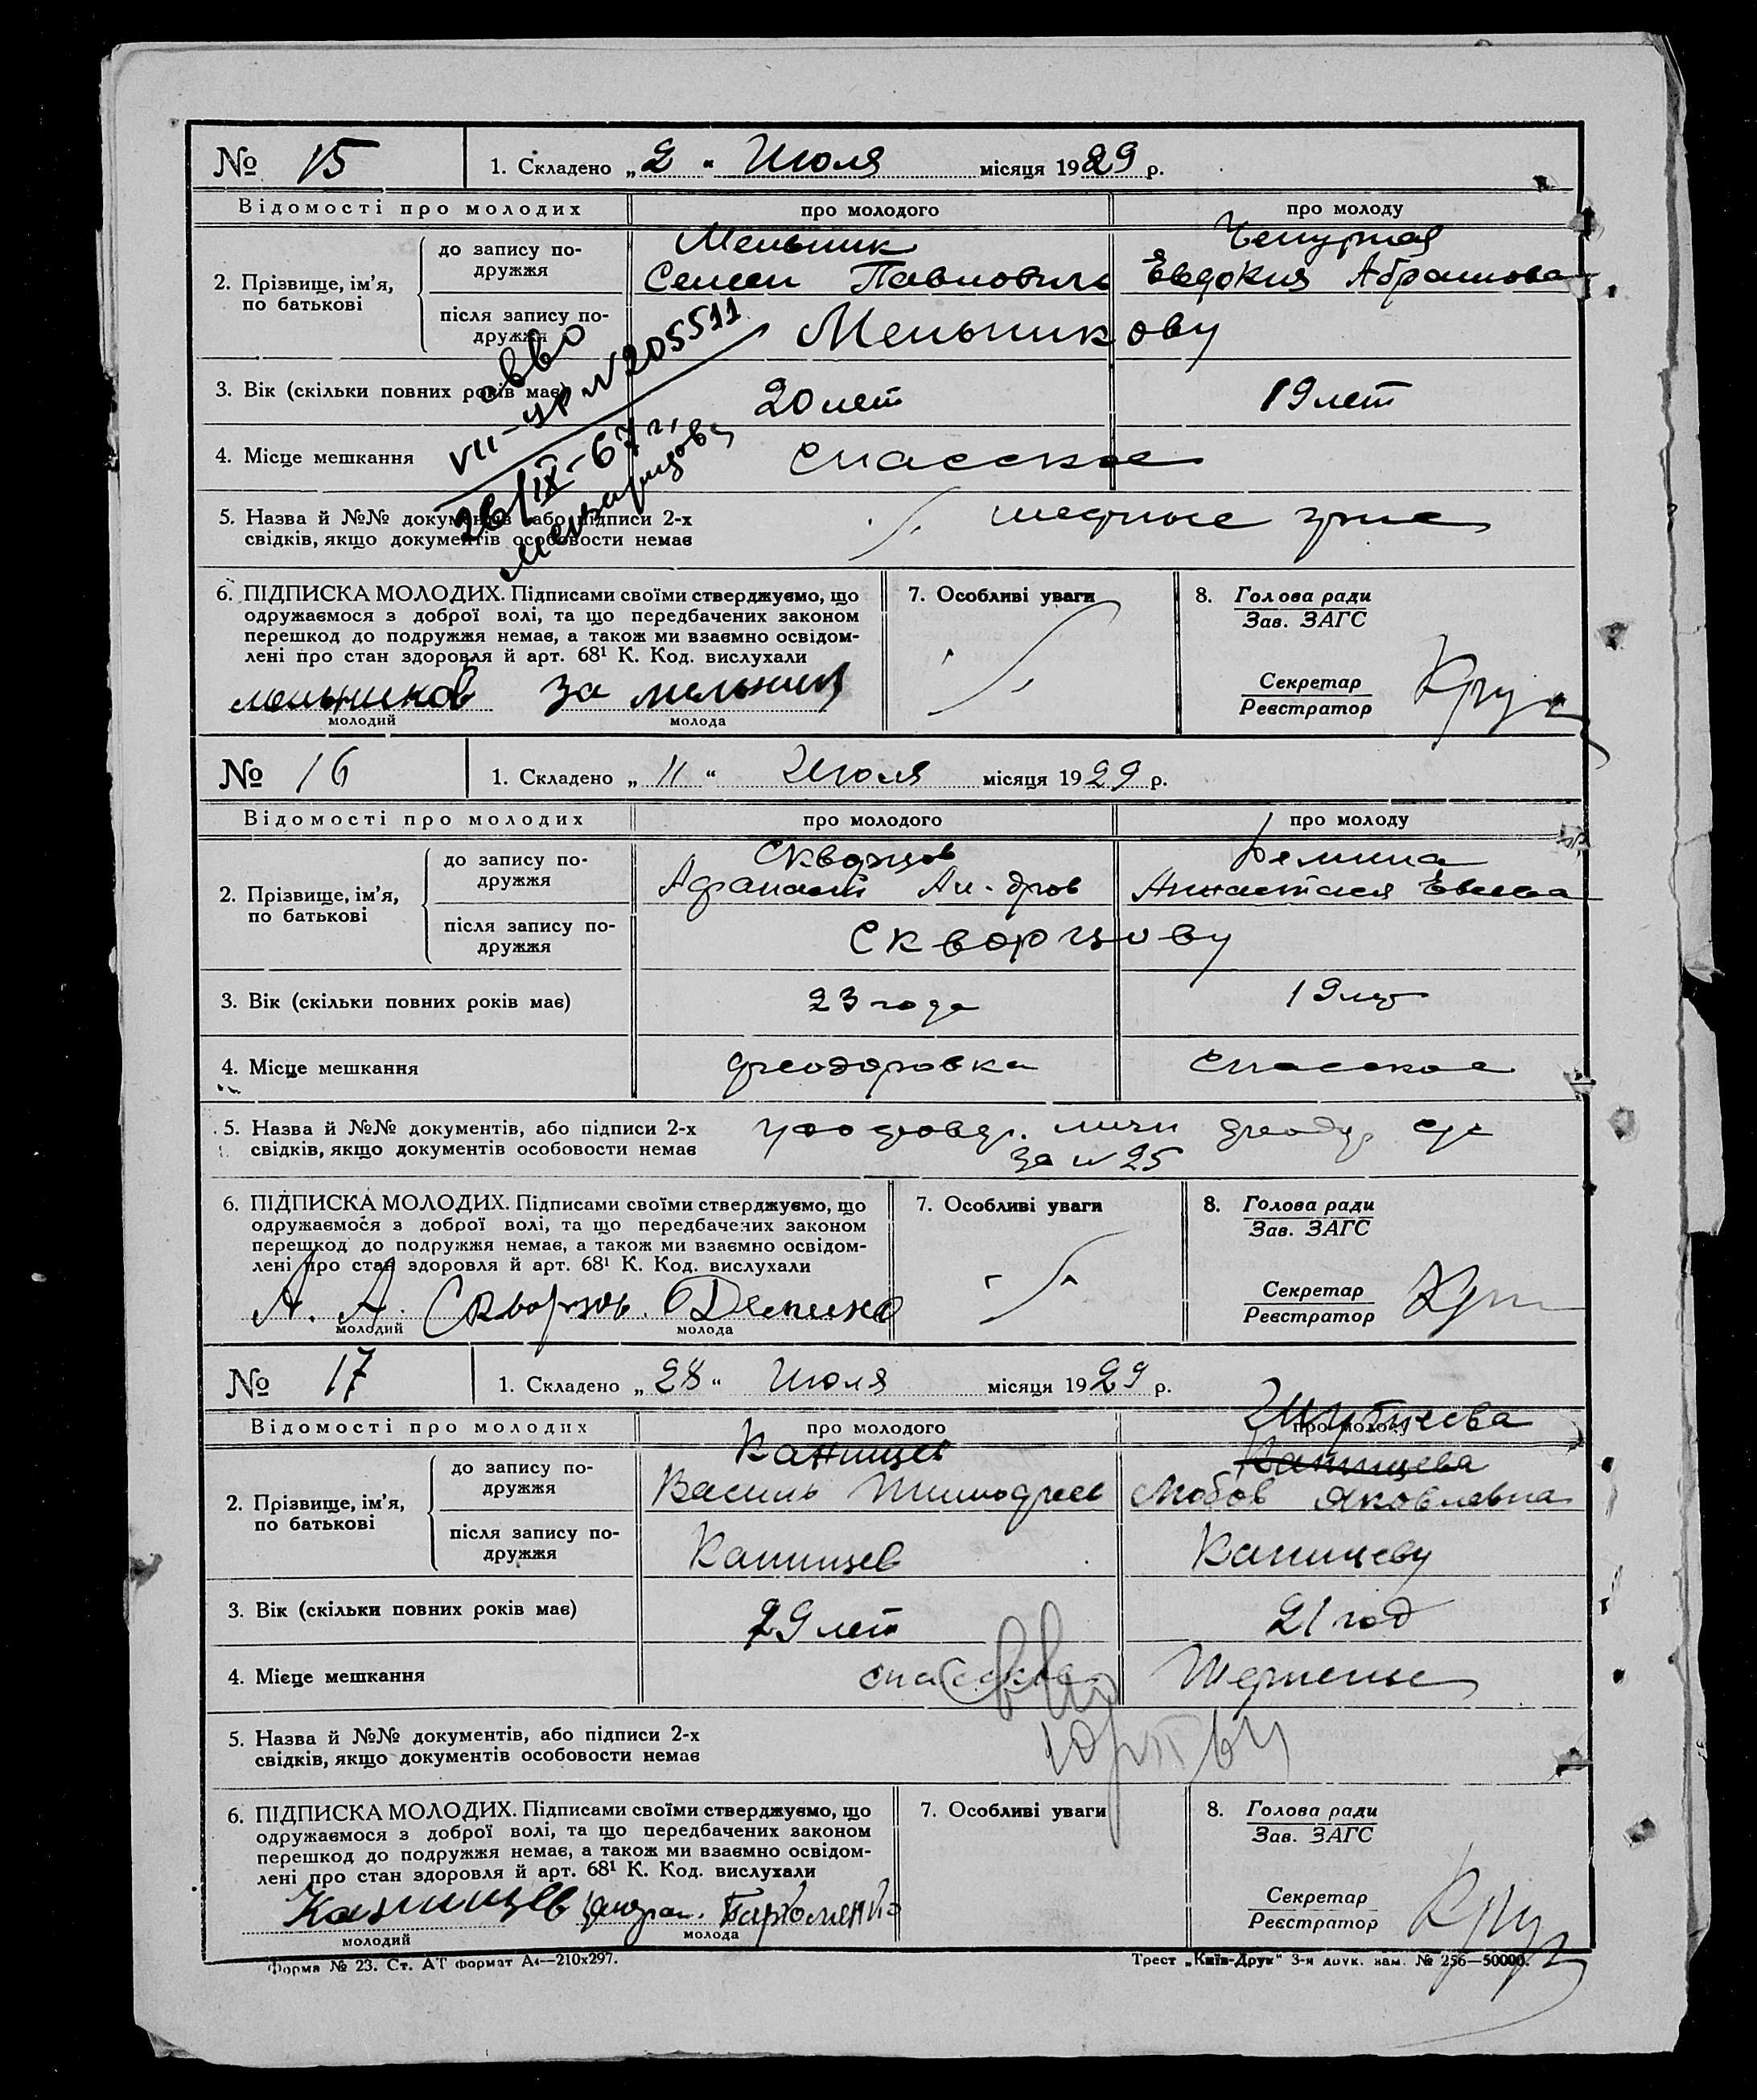 № 15 1. Складено „2" Июля місяця 1929 р.
Відомості про молодих про молодого про молоду
2. Прізвище, ім'я, по батькові
до запису подружжя
Мельник
Семен Павлович Евдокия Абрамова
після запису подружжя
Мельникову
VII-ЯР №205511
26/IX-67 г.
3. Вік (скільки повних років має) 20 лет 19 лет
4. Місце мешкання Спасское
5. Назва й №№ документів, або підписи 2-х
свідків, якщо документів особовости немає
6. ПІДПИСКА МОЛОДИХ. Підписами своїми стверджуємо, що
одружаємося з доброї волі, та що передбачених законом
перешкод до подружжя немає, а також ми взаємно освідом-
лені про стан здоровля й арт. 68¹ К. Код. вислухали
7. Особливі уваги
8. Голова ради
Зав. ЗАГС
Секретар
Реєстратор
мельников за
молодий молода
№ 16 1. Складено „11" Июля місяця 1929 р.
Відомості про молодих про молодого про молоду
2. Прізвище, ім'я, по батькові
до запису подружжя
Скворцов Демина
Афанасий Ан-дров Анастасия
після запису подружжя
Скворцову
3. Вік (скільки повних років має) 23 года 19 лет
4. Місце мешкання Феодоровка Спасское
5. Назва й №№ документів, або підписи 2-х
свідків, якщо документів особовости немає
за № 25
6. ПІДПИСКА МОЛОДИХ. Підписами своїми стверджуємо, що
одружаємося з доброї волі, та що передбачених законом
перешкод до подружжя немає, а також ми взаємно освідом-
лені про стан здоровля й арт. 68¹ К. Код. вислухали
7. Особливі уваги
8. Голова ради
Зав. ЗАГС
Секретар
Реєстратор
А. А. Скворцов. Демина
молодий молода
№ 17 1. Складено „28" Июля місяця 1929 р.
Відомості про молодих про молодого про молоду
2. Прізвище, ім'я, по батькові
до запису подружжя
Канищев Канищева
Василь Тимофеев Любов Яковлевна
після запису подружжя
Канищев Канищеву
3. Вік (скільки повних років має) 29 лет 21 год
4. Місце мешкання спасское
5. Назва й №№ документів, або підписи 2-х
свідків, якщо документів особовости немає
6. ПІДПИСКА МОЛОДИХ. Підписами своїми стверджуємо, що
одружаємося з доброї волі, та що передбачених законом
перешкод до подружжя немає, а також ми взаємно освідом-
лені про стан здоровля й арт. 68¹ К. Код. вислухали
7. Особливі уваги
8. Голова ради
Зав. ЗАГС
Секретар
Реєстратор
Канищев Пархоменко
молодий молода
Форма № 23. Ст. АТ формат А4—210х297.
Трест „Київ-Друк" 3-я друк. зам. № 256—50000.